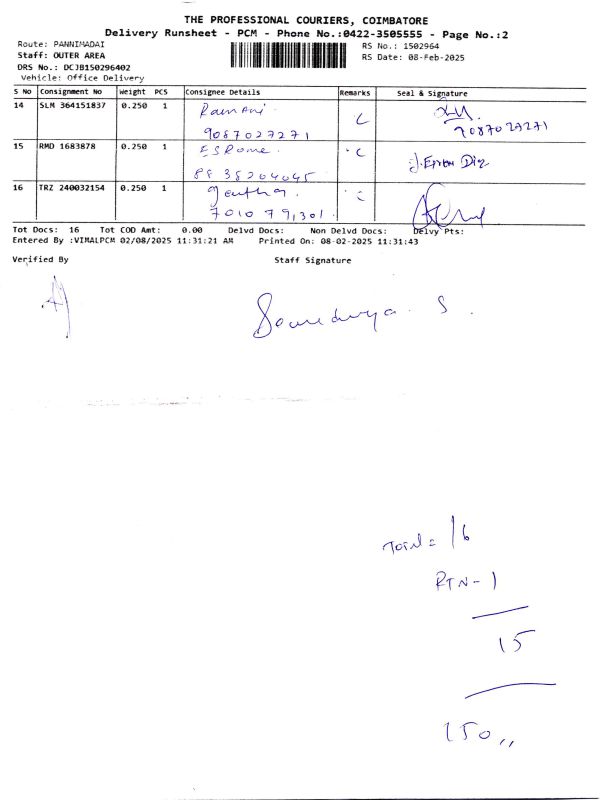 THE PROFESSIONAL COURIERS, COIMBATORE
Delivery Runsheet - PCM - Phone No.:0422-3505555 - Page No.:2
Route: PANNIMADAI
RS No.: 1502964
Staff: OUTER AREA
RS Date: 08-Feb-2025
DRS No.: DCJB150296402
Vehicle: Office Delivery
S No Consignment No Weight PCS Consignee Details Remarks Seal & Signature
14 SLM 364151837 0.250 1 Ramani. C
9087027271 9087027271
15 RMD 1683878 0.250 1 C
8835204045
16 TRZ 240032154 0.250 1 C
7010791301
Tot Docs: 16 Tot COD Amt: 0.00 Delvd Docs: Non Delvd Docs: Delvy Pts:
Entered By :VIMALPCM 02/08/2025 11:31:21 AM Printed On: 08-02-2025 11:31:43
Verified By Staff Signature
Total = 16
RTN - 1
15
150,,